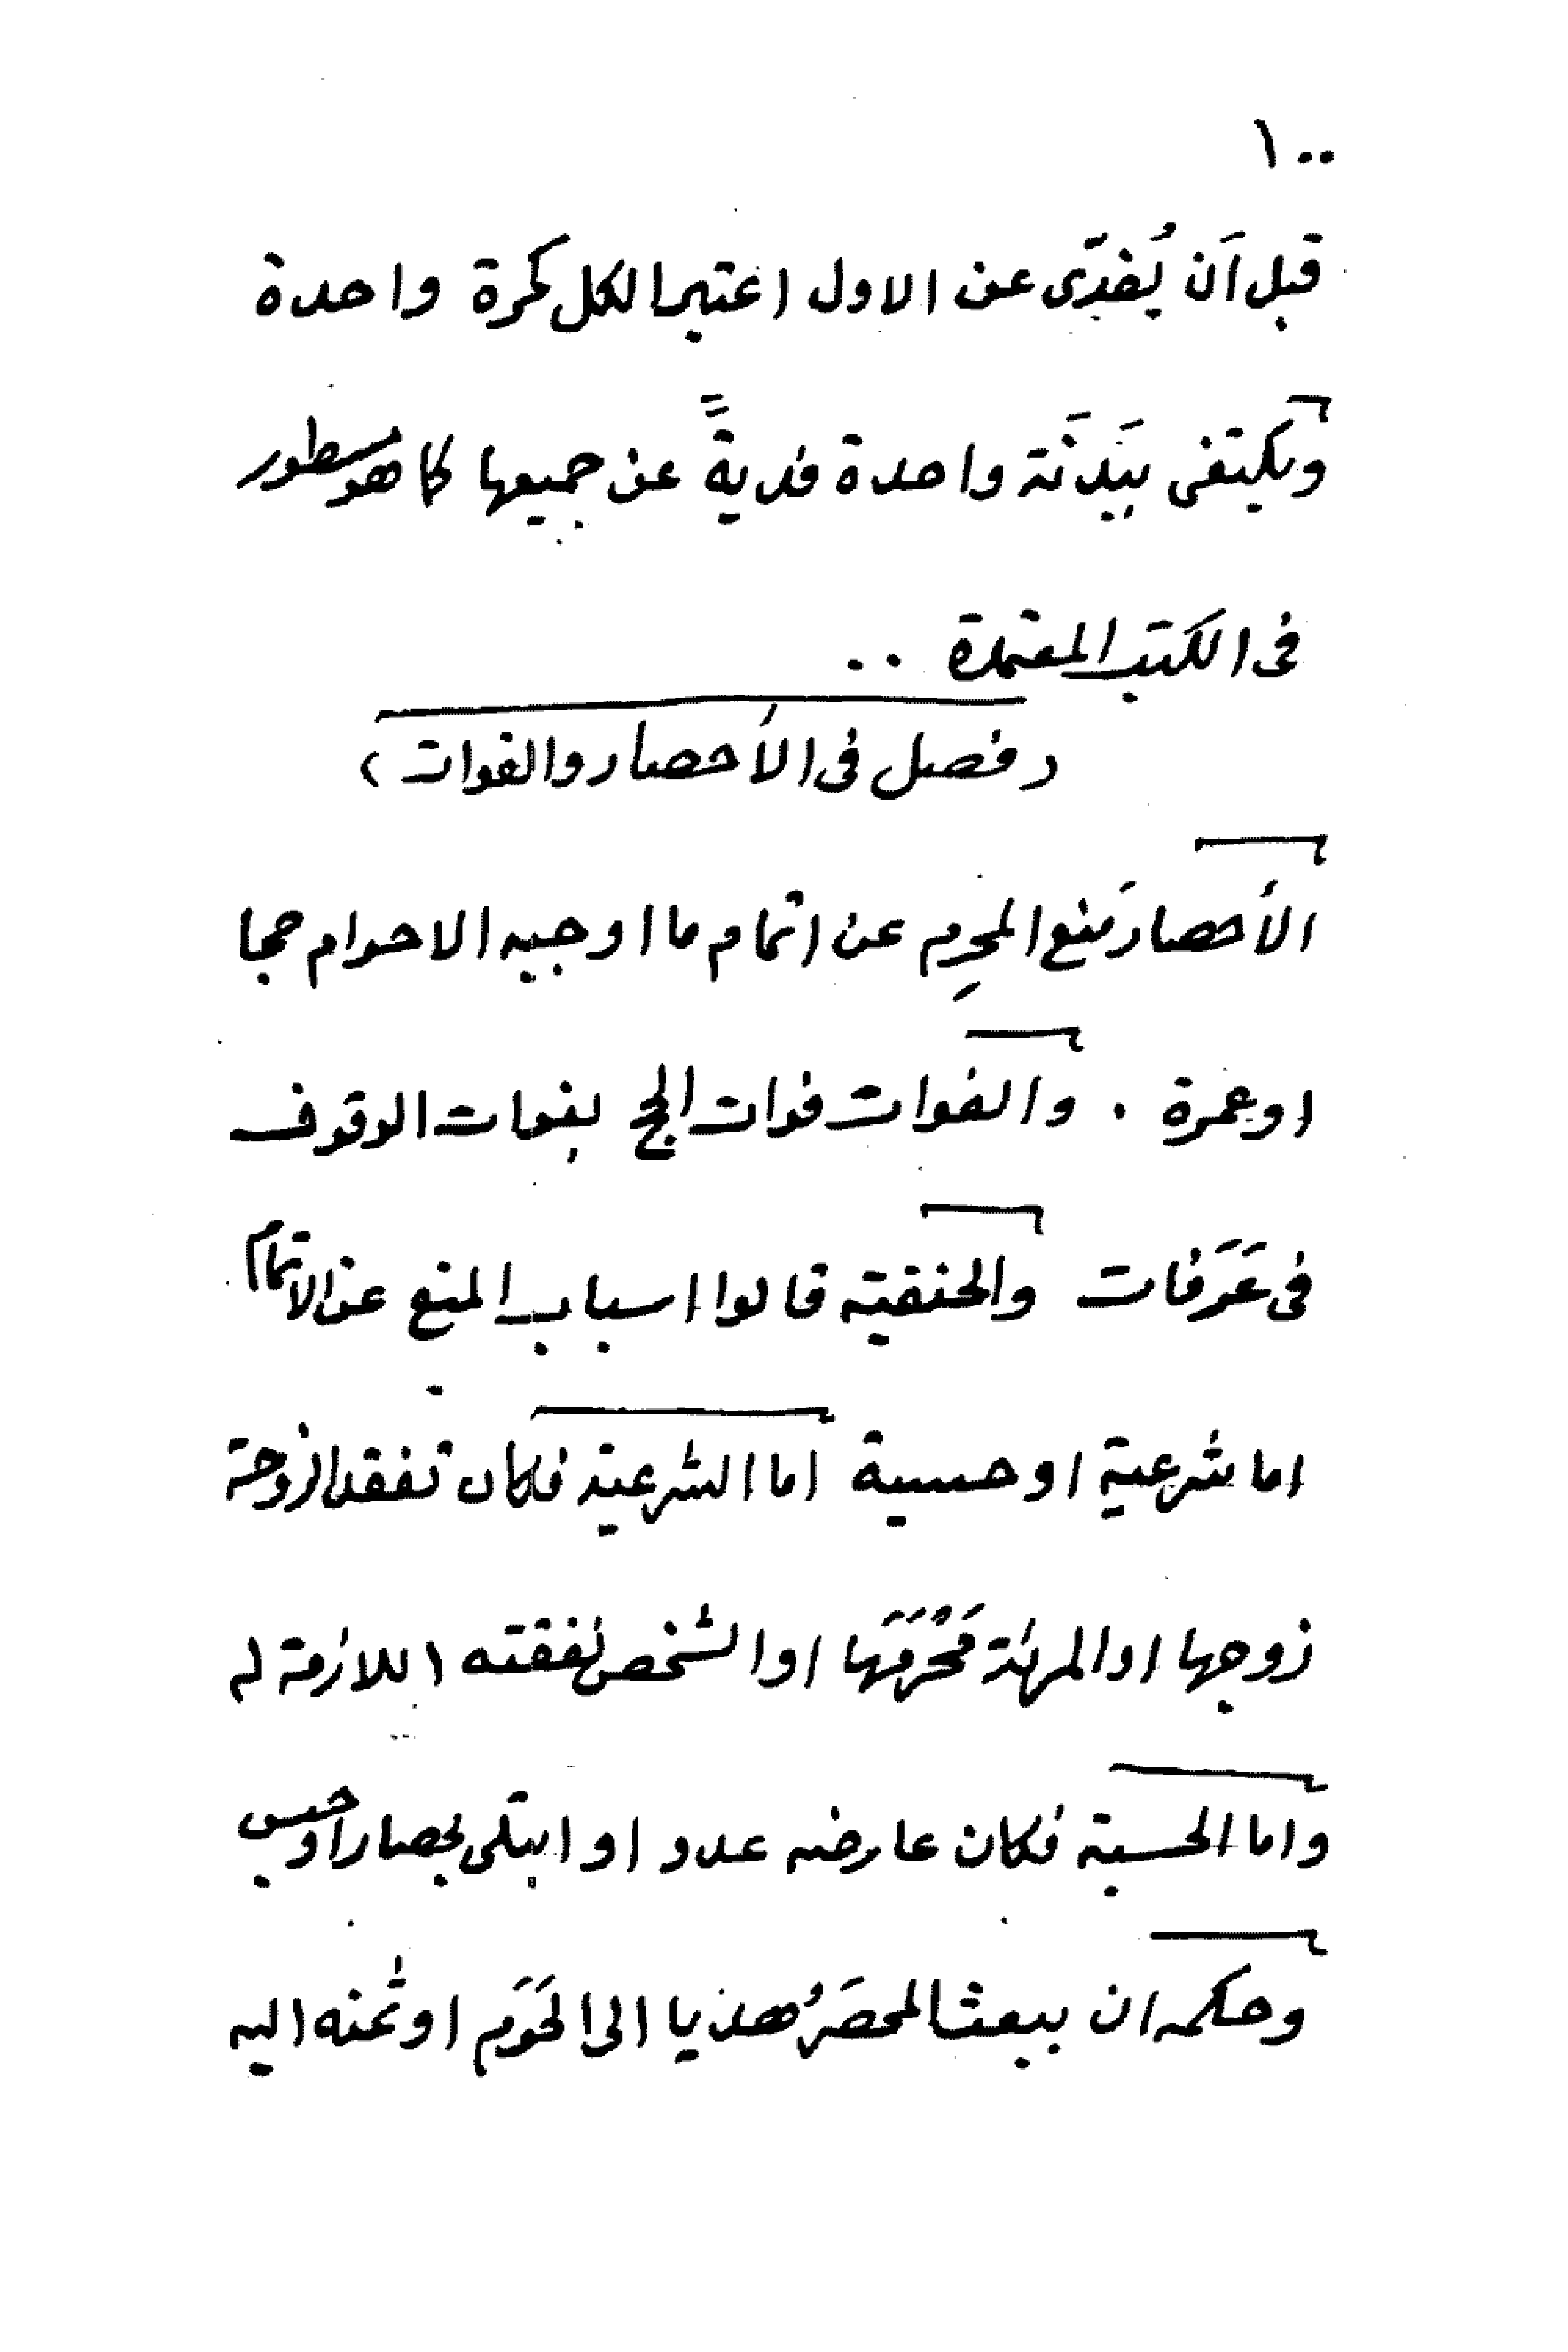 ١٠٠
قبل أن يُفدّى عن الاول اعتبر الكل كمرة واحدة
ويكتفى ببَدنَة واحدة فديةً عن جميعها كما هو مسطور
فى الكتب المعتمدة ..
( فصل فى الأحصار والفوات )
الأحصار منع المحرِم عن اتمام ما اوجبه الاحرام حجا
او عمرة . والفوات فوات الحج بفوات الوقوف
فى عَرَفات والحنفية قالوا اسباب المنع عن الاتمام
اما شرعية او حسية اما الشرعية فكان تفقد الزوجة
زوجها او المرئة مَحْرَمَها او الشخص نفقته اللازمة له
واما الحسية فكان عارضه عدو او ابتلى بحصار او حبس
وحكمه ان يبعث المحصَرُ هديا الى الحَرَم او ثمنه اليه